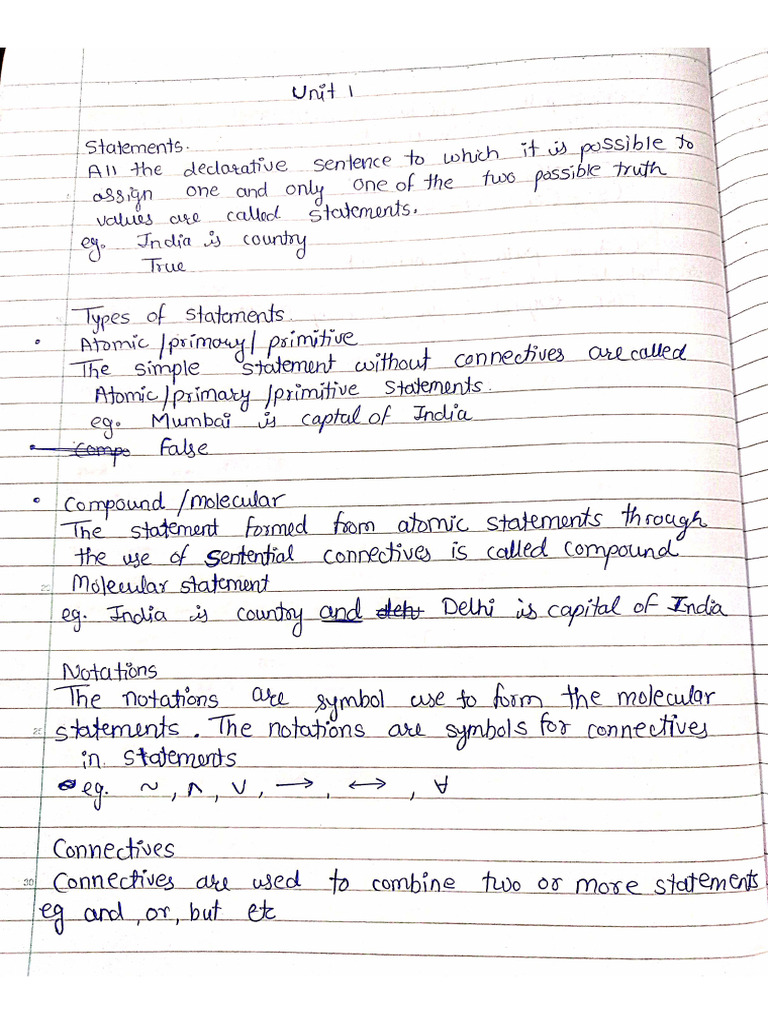 Unit 1
Statements.
All the declarative sentence to which it is possible to
assign one and only one of the two possible truth
values are called statements.
eg. India is country
True
Types of statements
• Atomic /primary/ primitive
The simple statement without connectives are called
Atomic/primary/primitive statements.
eg. Mumbai is captal of India
• Comp False
• Compound /molecular
The statement formed from atomic statements through
the use of sentential connectives is called compound
Molecular statement
25
eg. India is country and deh Delhi is capital of India
Notations
The notations are symbol use to form the molecular
25 statements. The notations are symbols for connectives
in statements
eg. ~, ∧, ∨, →, ↔, ∀
Connectives
30 Connectives are used to combine two or more statements
eg and, or, but etc